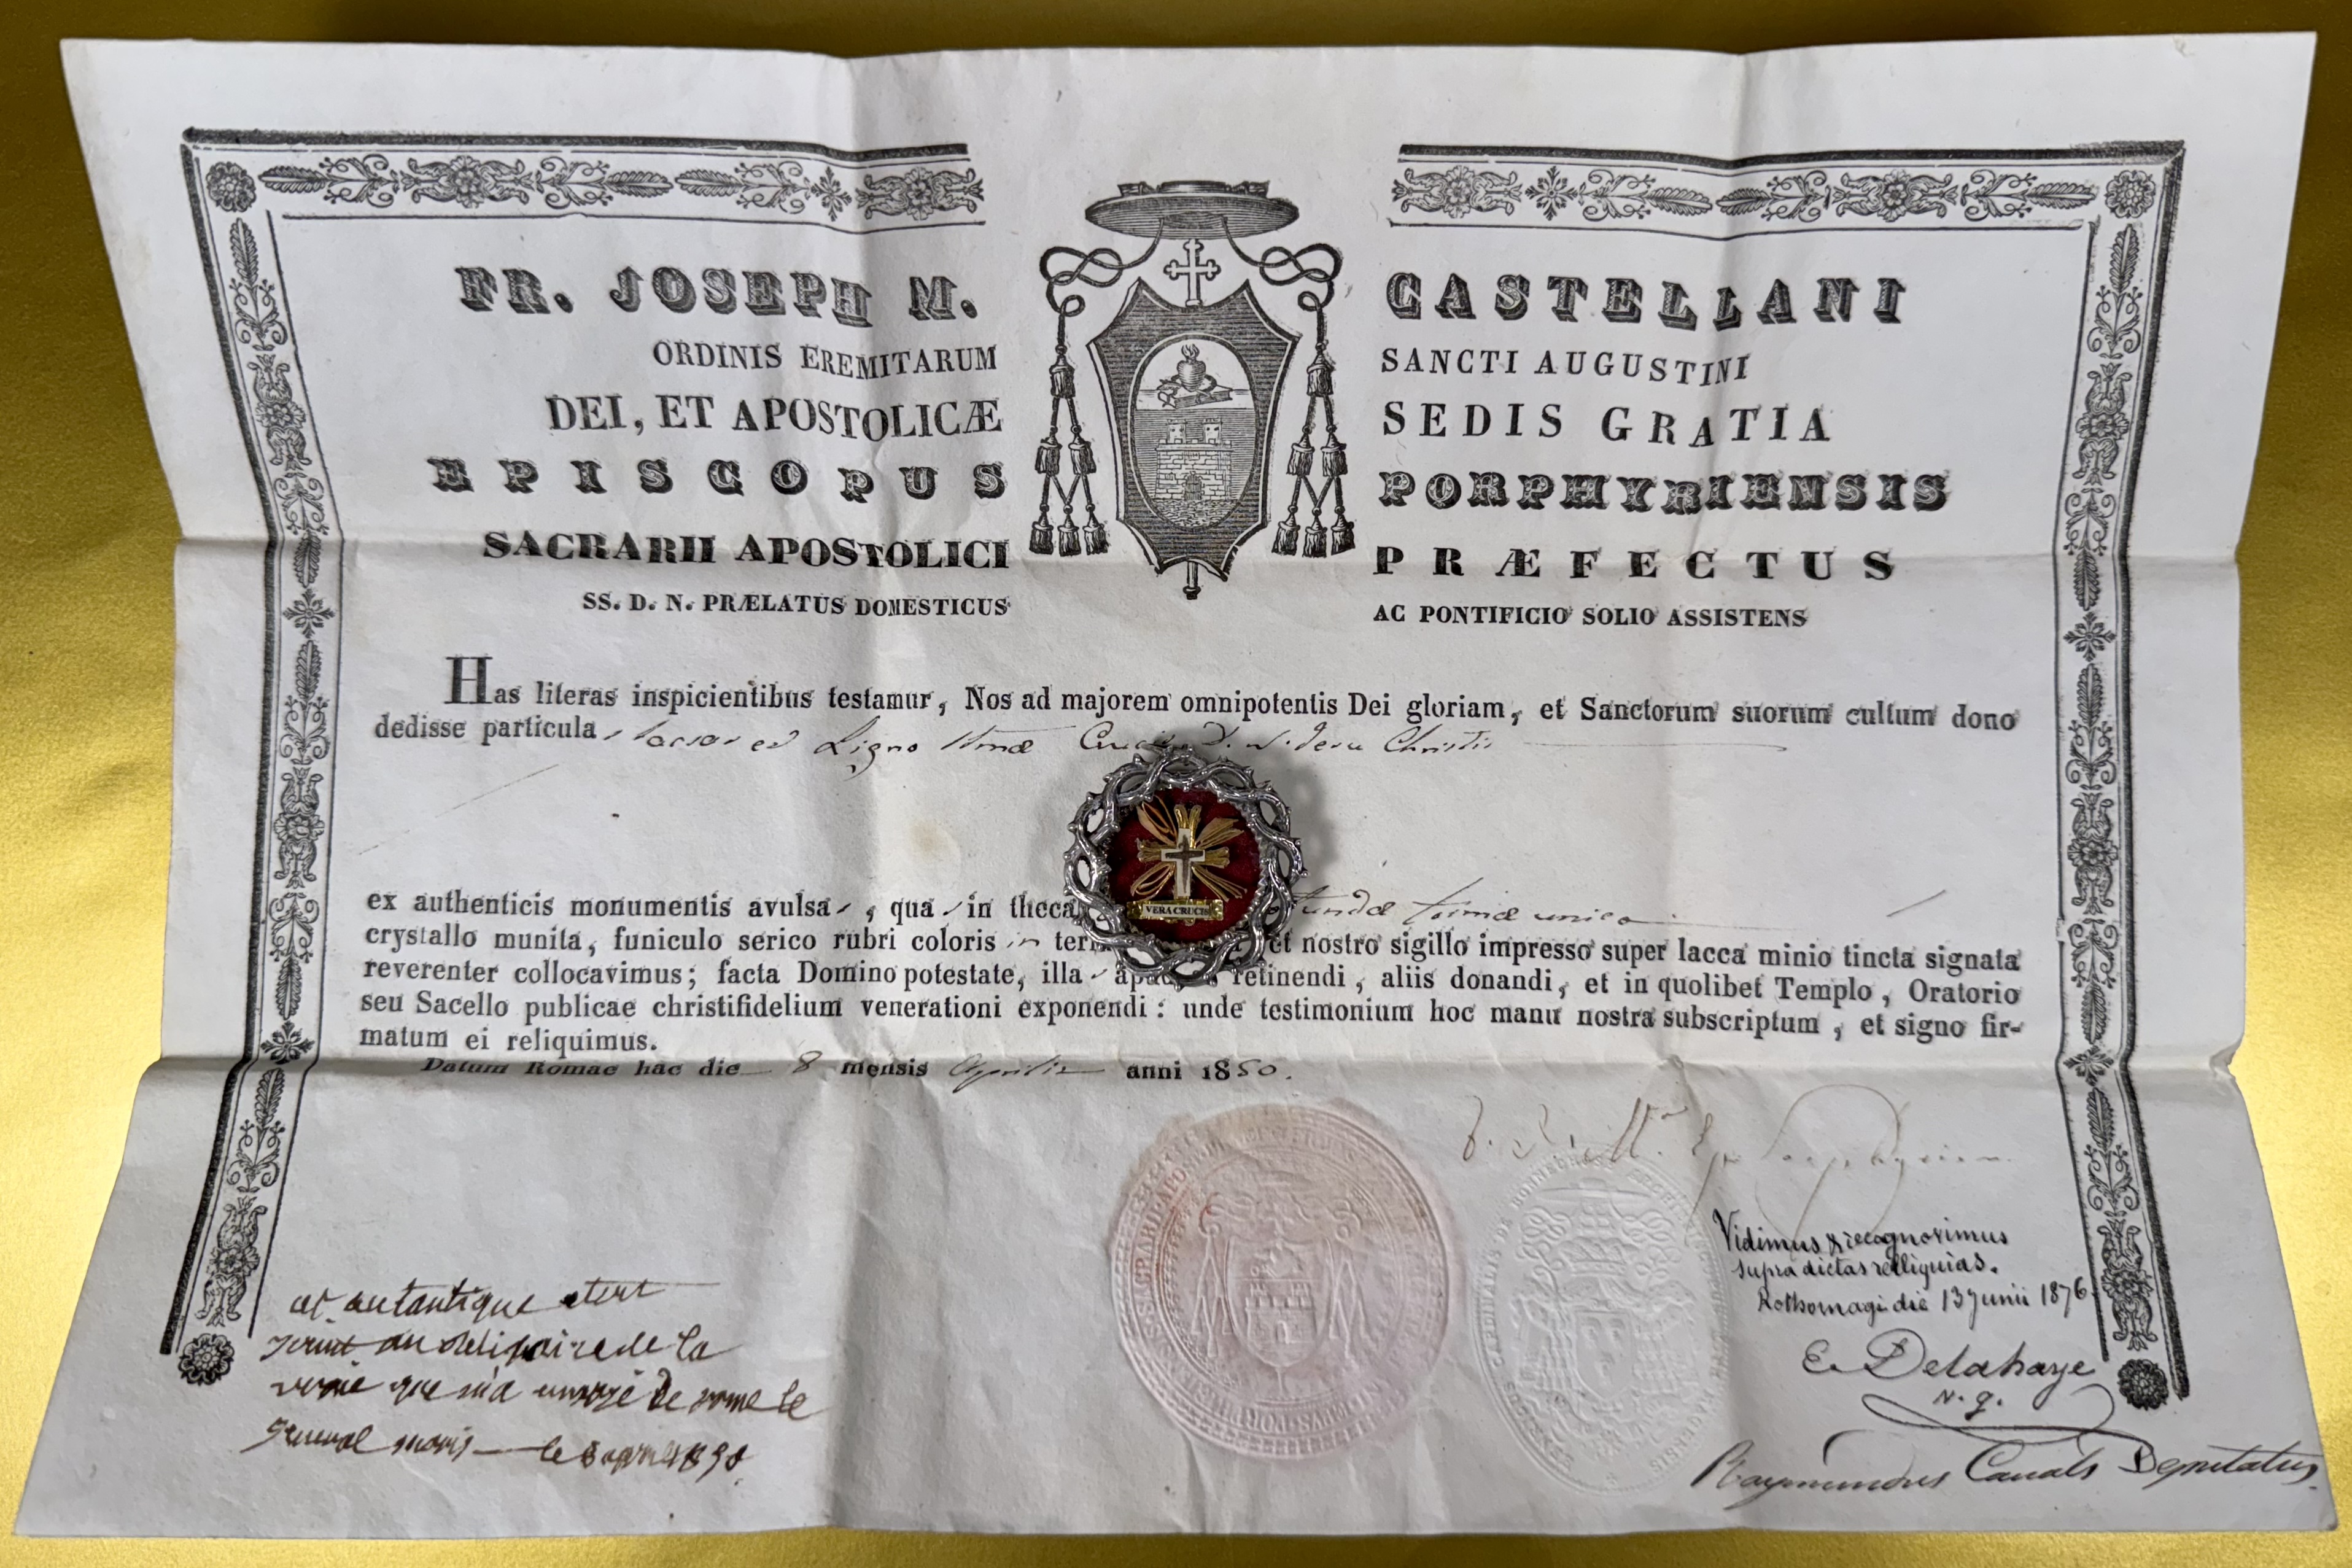 FR. JOSEPH M. CASTELLANI
ORDINIS EREMITARUM SANCTI AUGUSTINI
DEI, ET APOSTOLICÆ SEDIS GRATIA
EPISCOPUS PORPHYRIENSIS
SACRARII APOSTOLICI PRÆFECTUS
SS. D. N. PRÆLATUS DOMESTICUS AC PONTIFICIO SOLIO ASSISTENS
Has literas inspicientibus testamur, Nos ad majorem omnipotentis Dei gloriam, et Sanctorum suorum cultum dono
dedisse particula sacras ex Ligno Smæ Crucis D. N. Jesu Christi
VERA CRUCIS
ex authenticis monumentis avulsa, qua in theca formæ unico
crystallo munita, funiculo serico rubri coloris et nostro sigillo impresso super lacca minio tincta signata
reverenter collocavimus; facta Domino potestate, illa retinendi, aliis donandi, et in quolibet Templo, Oratorio
seu Sacello publicae christifidelium venerationi exponendi: unde testimonium hoc manu nostra subscriptum, et signo fir-
matum ei reliquimus.
Datum Romae hac die 8 mensis Aprilis anni 1850.
Vidimus & recognovimus
supra dictas relliquias.
Rothomagi die 13 junii 1876.
E. Delahaye
N. g.
Raymundus Canals Deputatus.
autantique
au de la
que m'a de rome le
General le 8